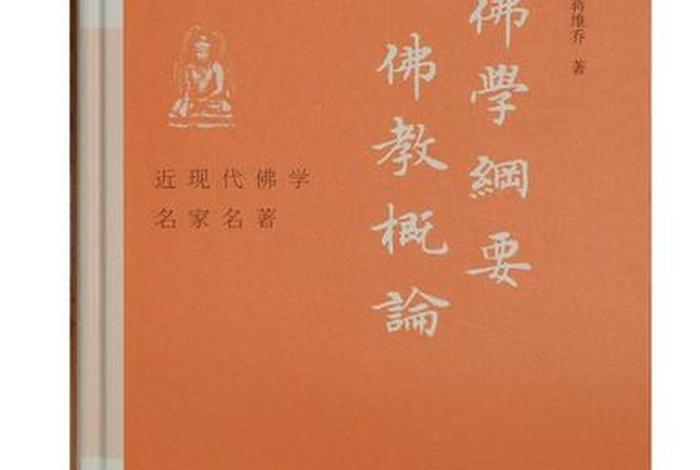 蒋维乔 著
佛學綱要
佛教概論
近现代佛学
名家名著